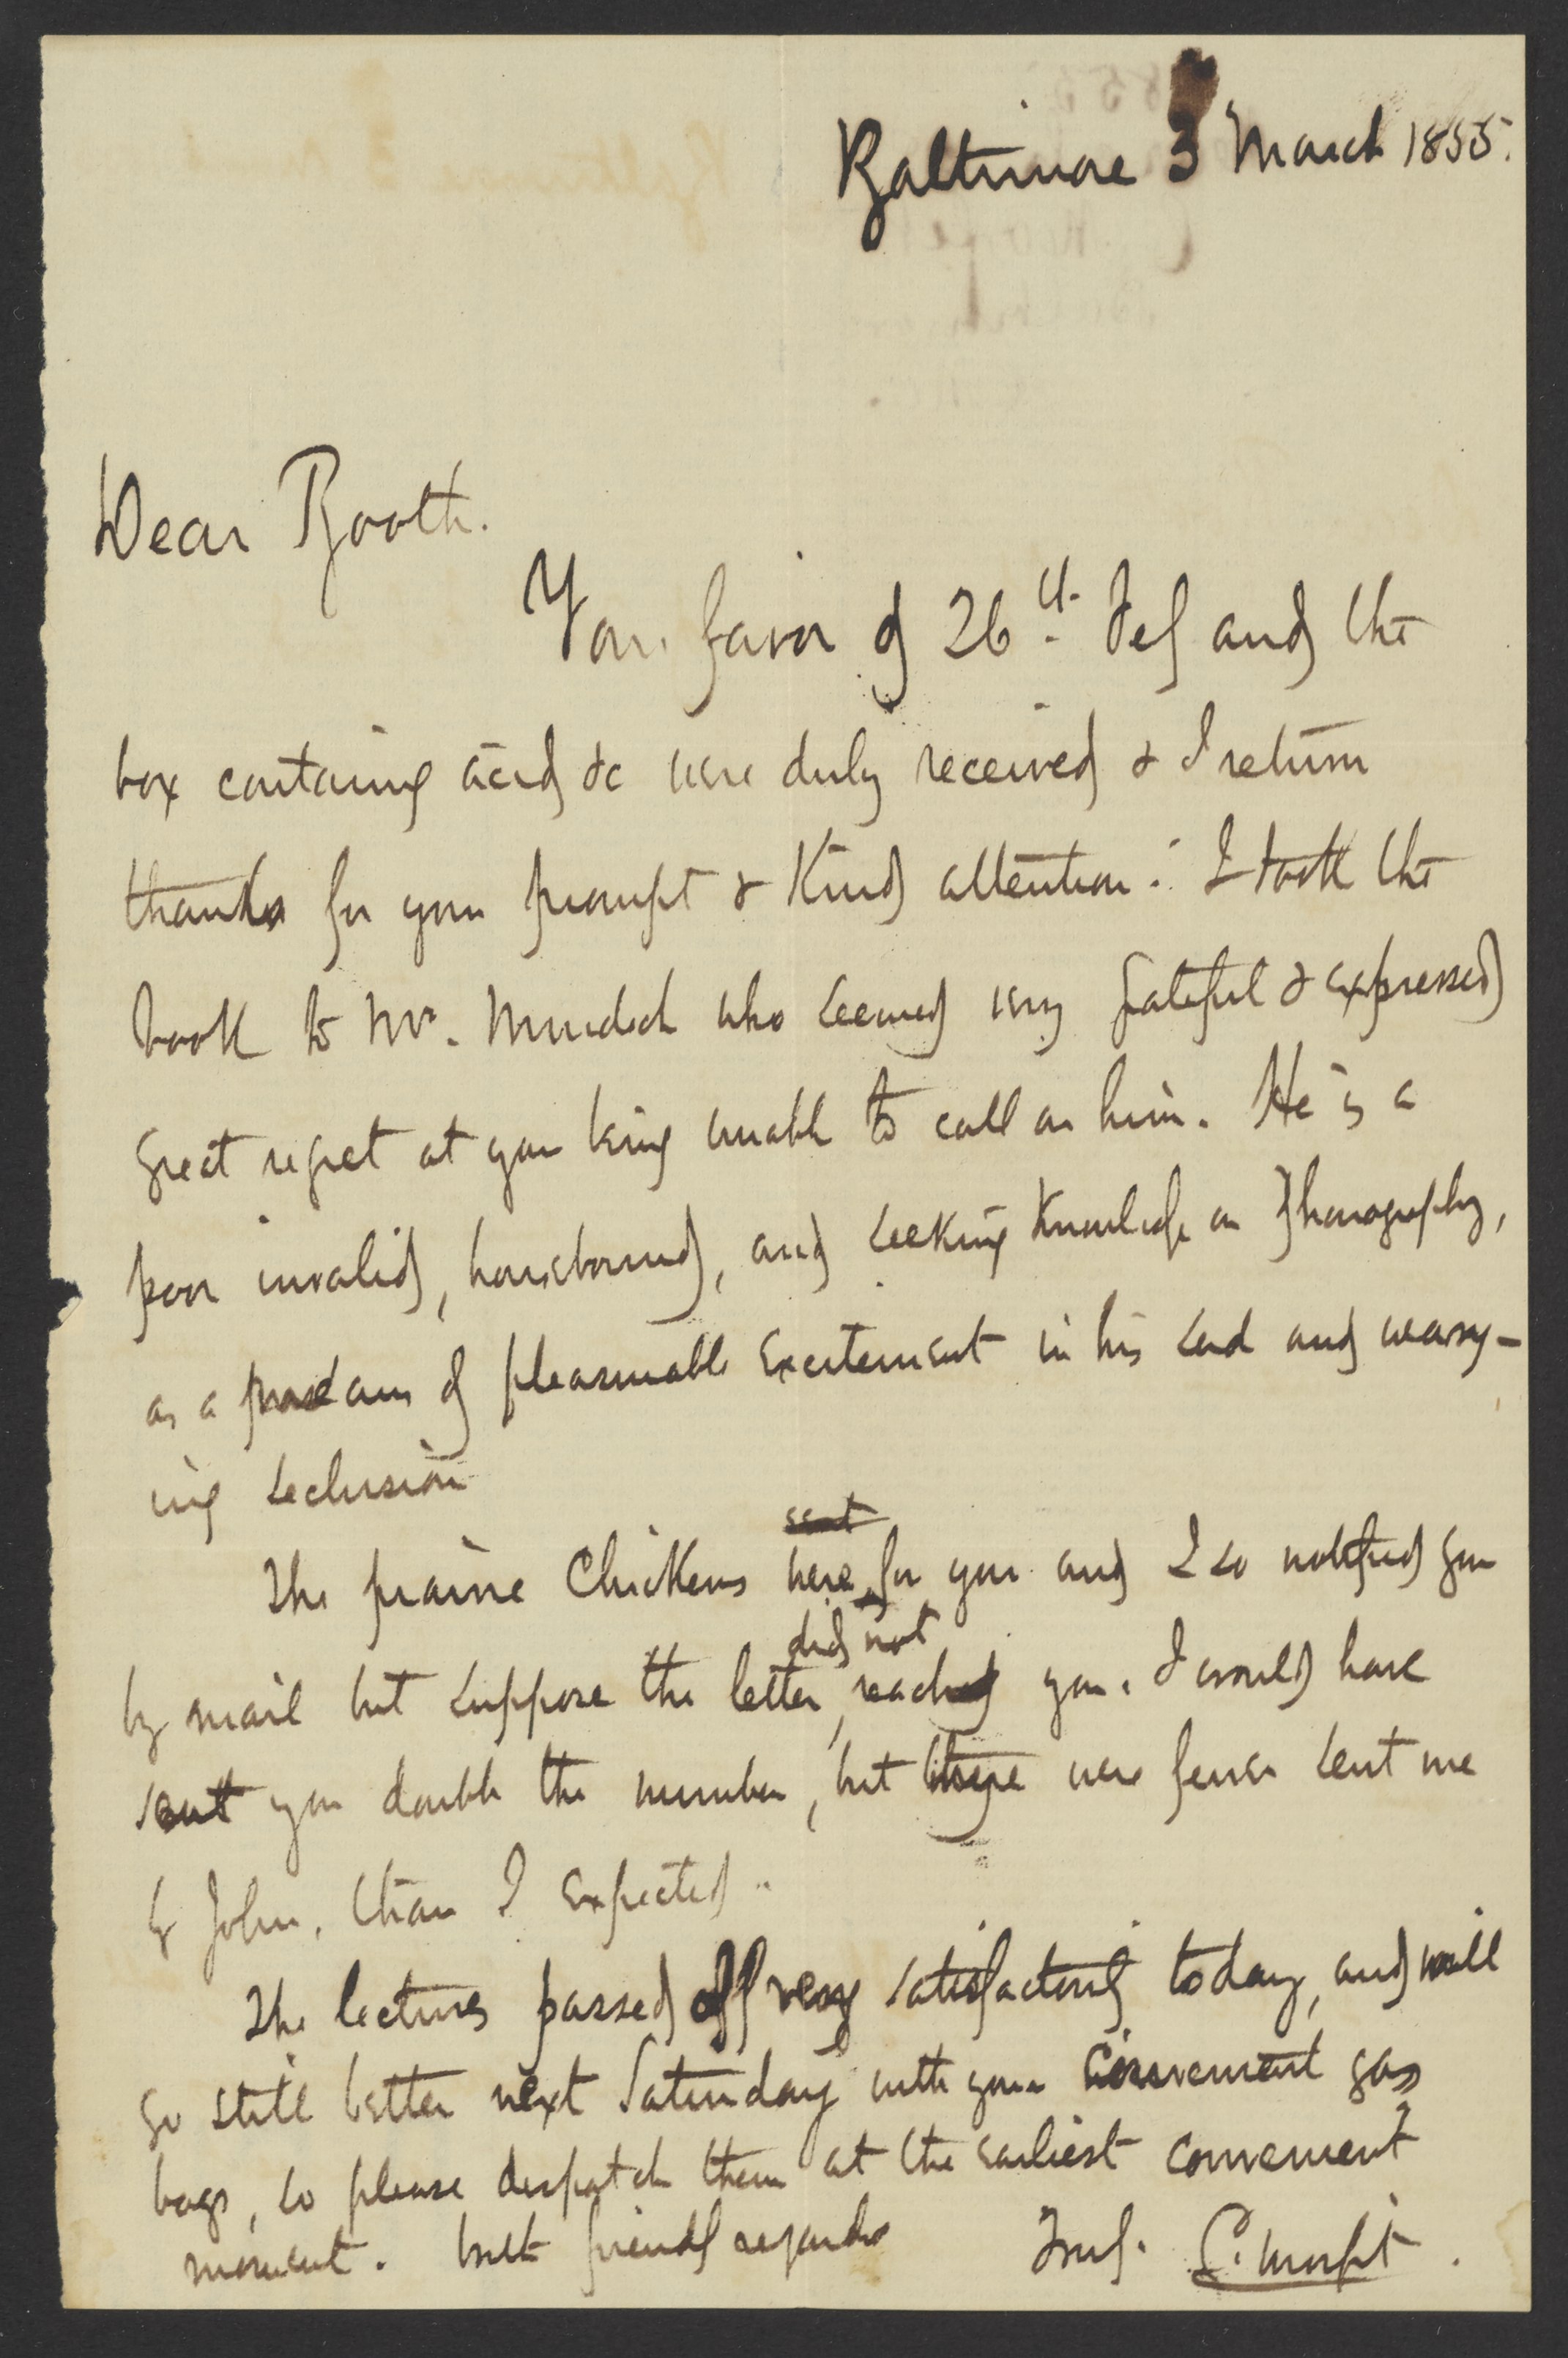 Baltimore 3 March 1855.
Dear Booth.
Your favor of 26th. Feb and the
box containing acid &c were duly received & I return
thanks for your prompt & Kind attention. I took the
book to Mr. Murdoch who seemed very grateful & expressed
great regret at your being unable to call on him. He is a
poor invalid, housebound, and seeking Knowledge on Phonography,
as a means of pleasurable excitement in his sad and weary-
ing seclusion
sent
The prairie Chickens were for you and I so notified you
did not
by mail but suppose the letter reached you. I would have
sent you double the number, but there were fewer sent me
by John, than I expected.
The lectures passed off very satisfactorily today, and will
go still better next Saturday with your convenient gas
bags, so please despatch them at the earliest convenient
moment. With friendly regards Truly. C. Morfit.